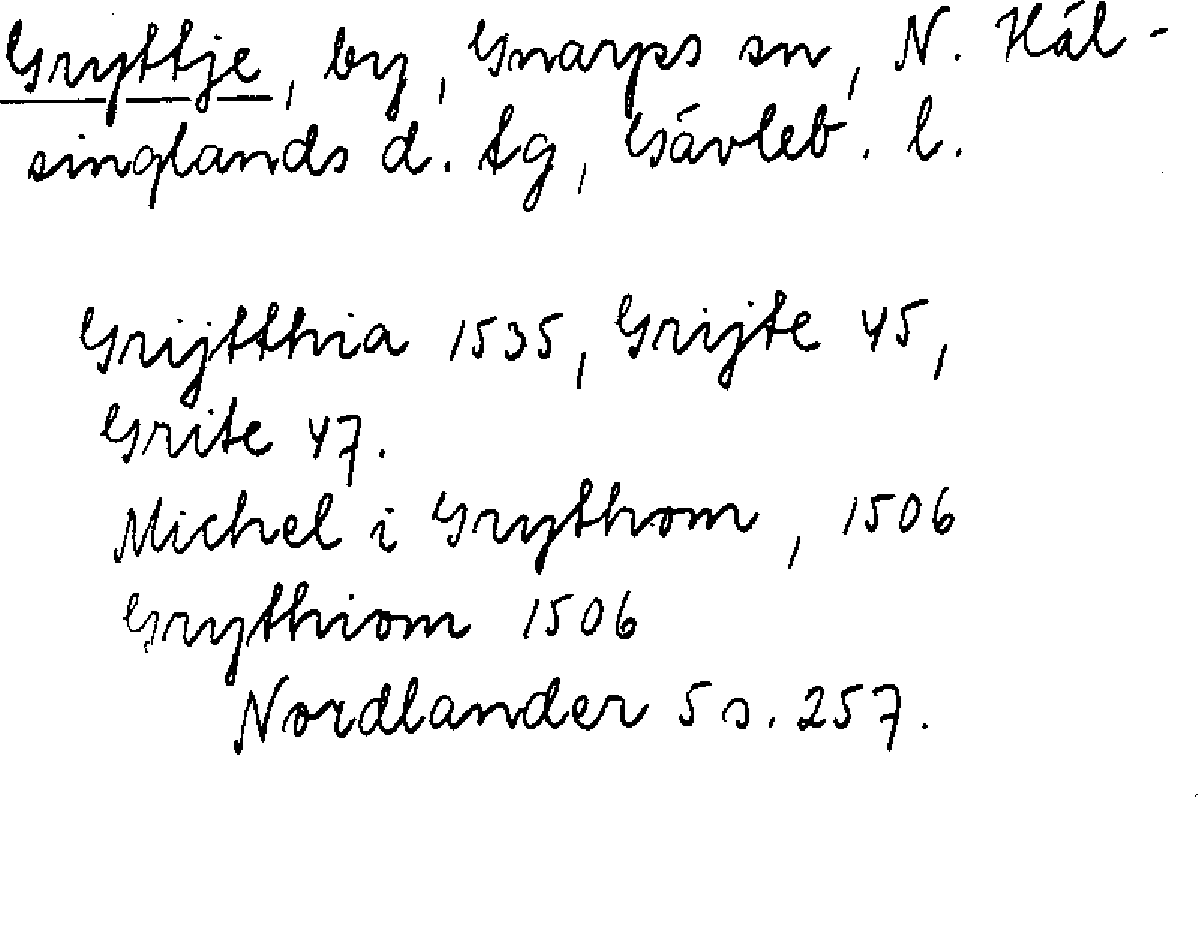 Gryttje, by, Gnarps sn, N. Häl-
singlands d. tg, Gävleb. l.
Grijtthia 1535, Grijte 45,
Grite 47.
Michel i Grythom, 1506
Grythiom 1506
Nordlander 5 s. 257.